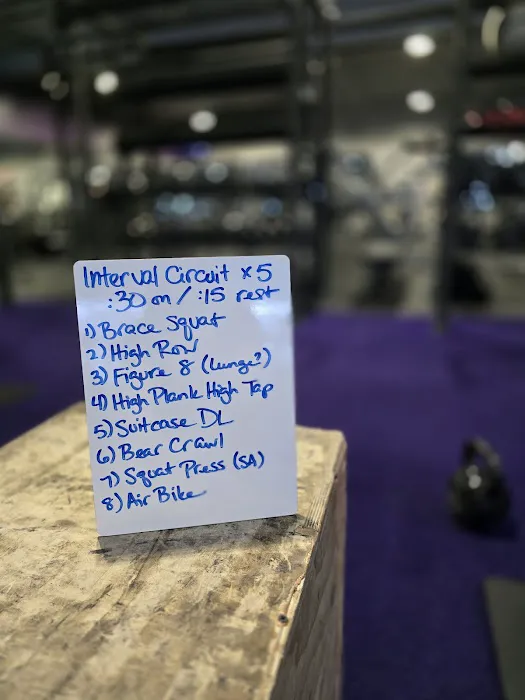 Interval Circuit x5
:30 on / :15 rest
1) Brace Squat
2) High Row
3) Figure 8 (Lunge?)
4) High Plank High Tap
5) Suitcase DL
6) Bear Crawl
7) Squat Press (SA)
8) Air Bike